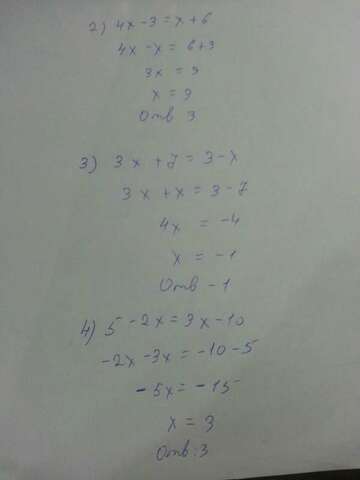 2) 4x - 3 = x + 6
4x - x = 6 + 3
3x = 9
x = 3
Отв 3
3) 3x + 7 = 3 - x
3x + x = 3 - 7
4x = -4
x = -1
Отв - 1
4) 5 - 2x = 3x - 10
-2x - 3x = -10 - 5
-5x = -15
x = 3
Отв: 3